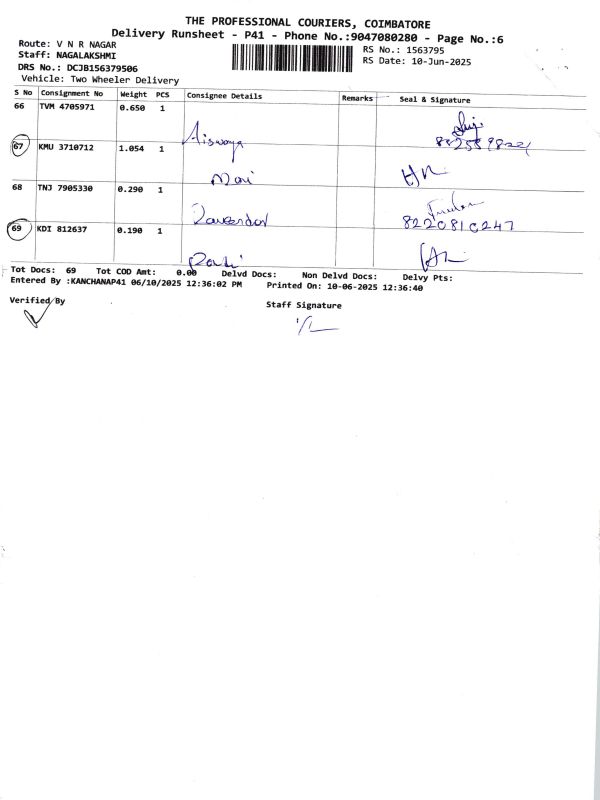 THE PROFESSIONAL COURIERS, COIMBATORE
Delivery Runsheet - P41 - Phone No.:9047080280 - Page No.:6
Route: V N R NAGAR
RS No.: 1563795
Staff: NAGALAKSHMI
RS Date: 10-Jun-2025
DRS No.: DCJB156379506
Vehicle: Two Wheeler Delivery
S No Consignment No Weight PCS Consignee Details Remarks Seal & Signature
66 TVM 4705971 0.650 1
67 KMU 3710712 1.054 1
Mani
68 TNJ 7905330 0.290 1
8220810247
69 KDI 812637 0.190 1
Tot Docs: 69 Tot COD Amt: 0.00 Delvd Docs: Non Delvd Docs: Delvy Pts:
Entered By :KANCHANAP41 06/10/2025 12:36:02 PM Printed On: 10-06-2025 12:36:40
Verified By
Staff Signature